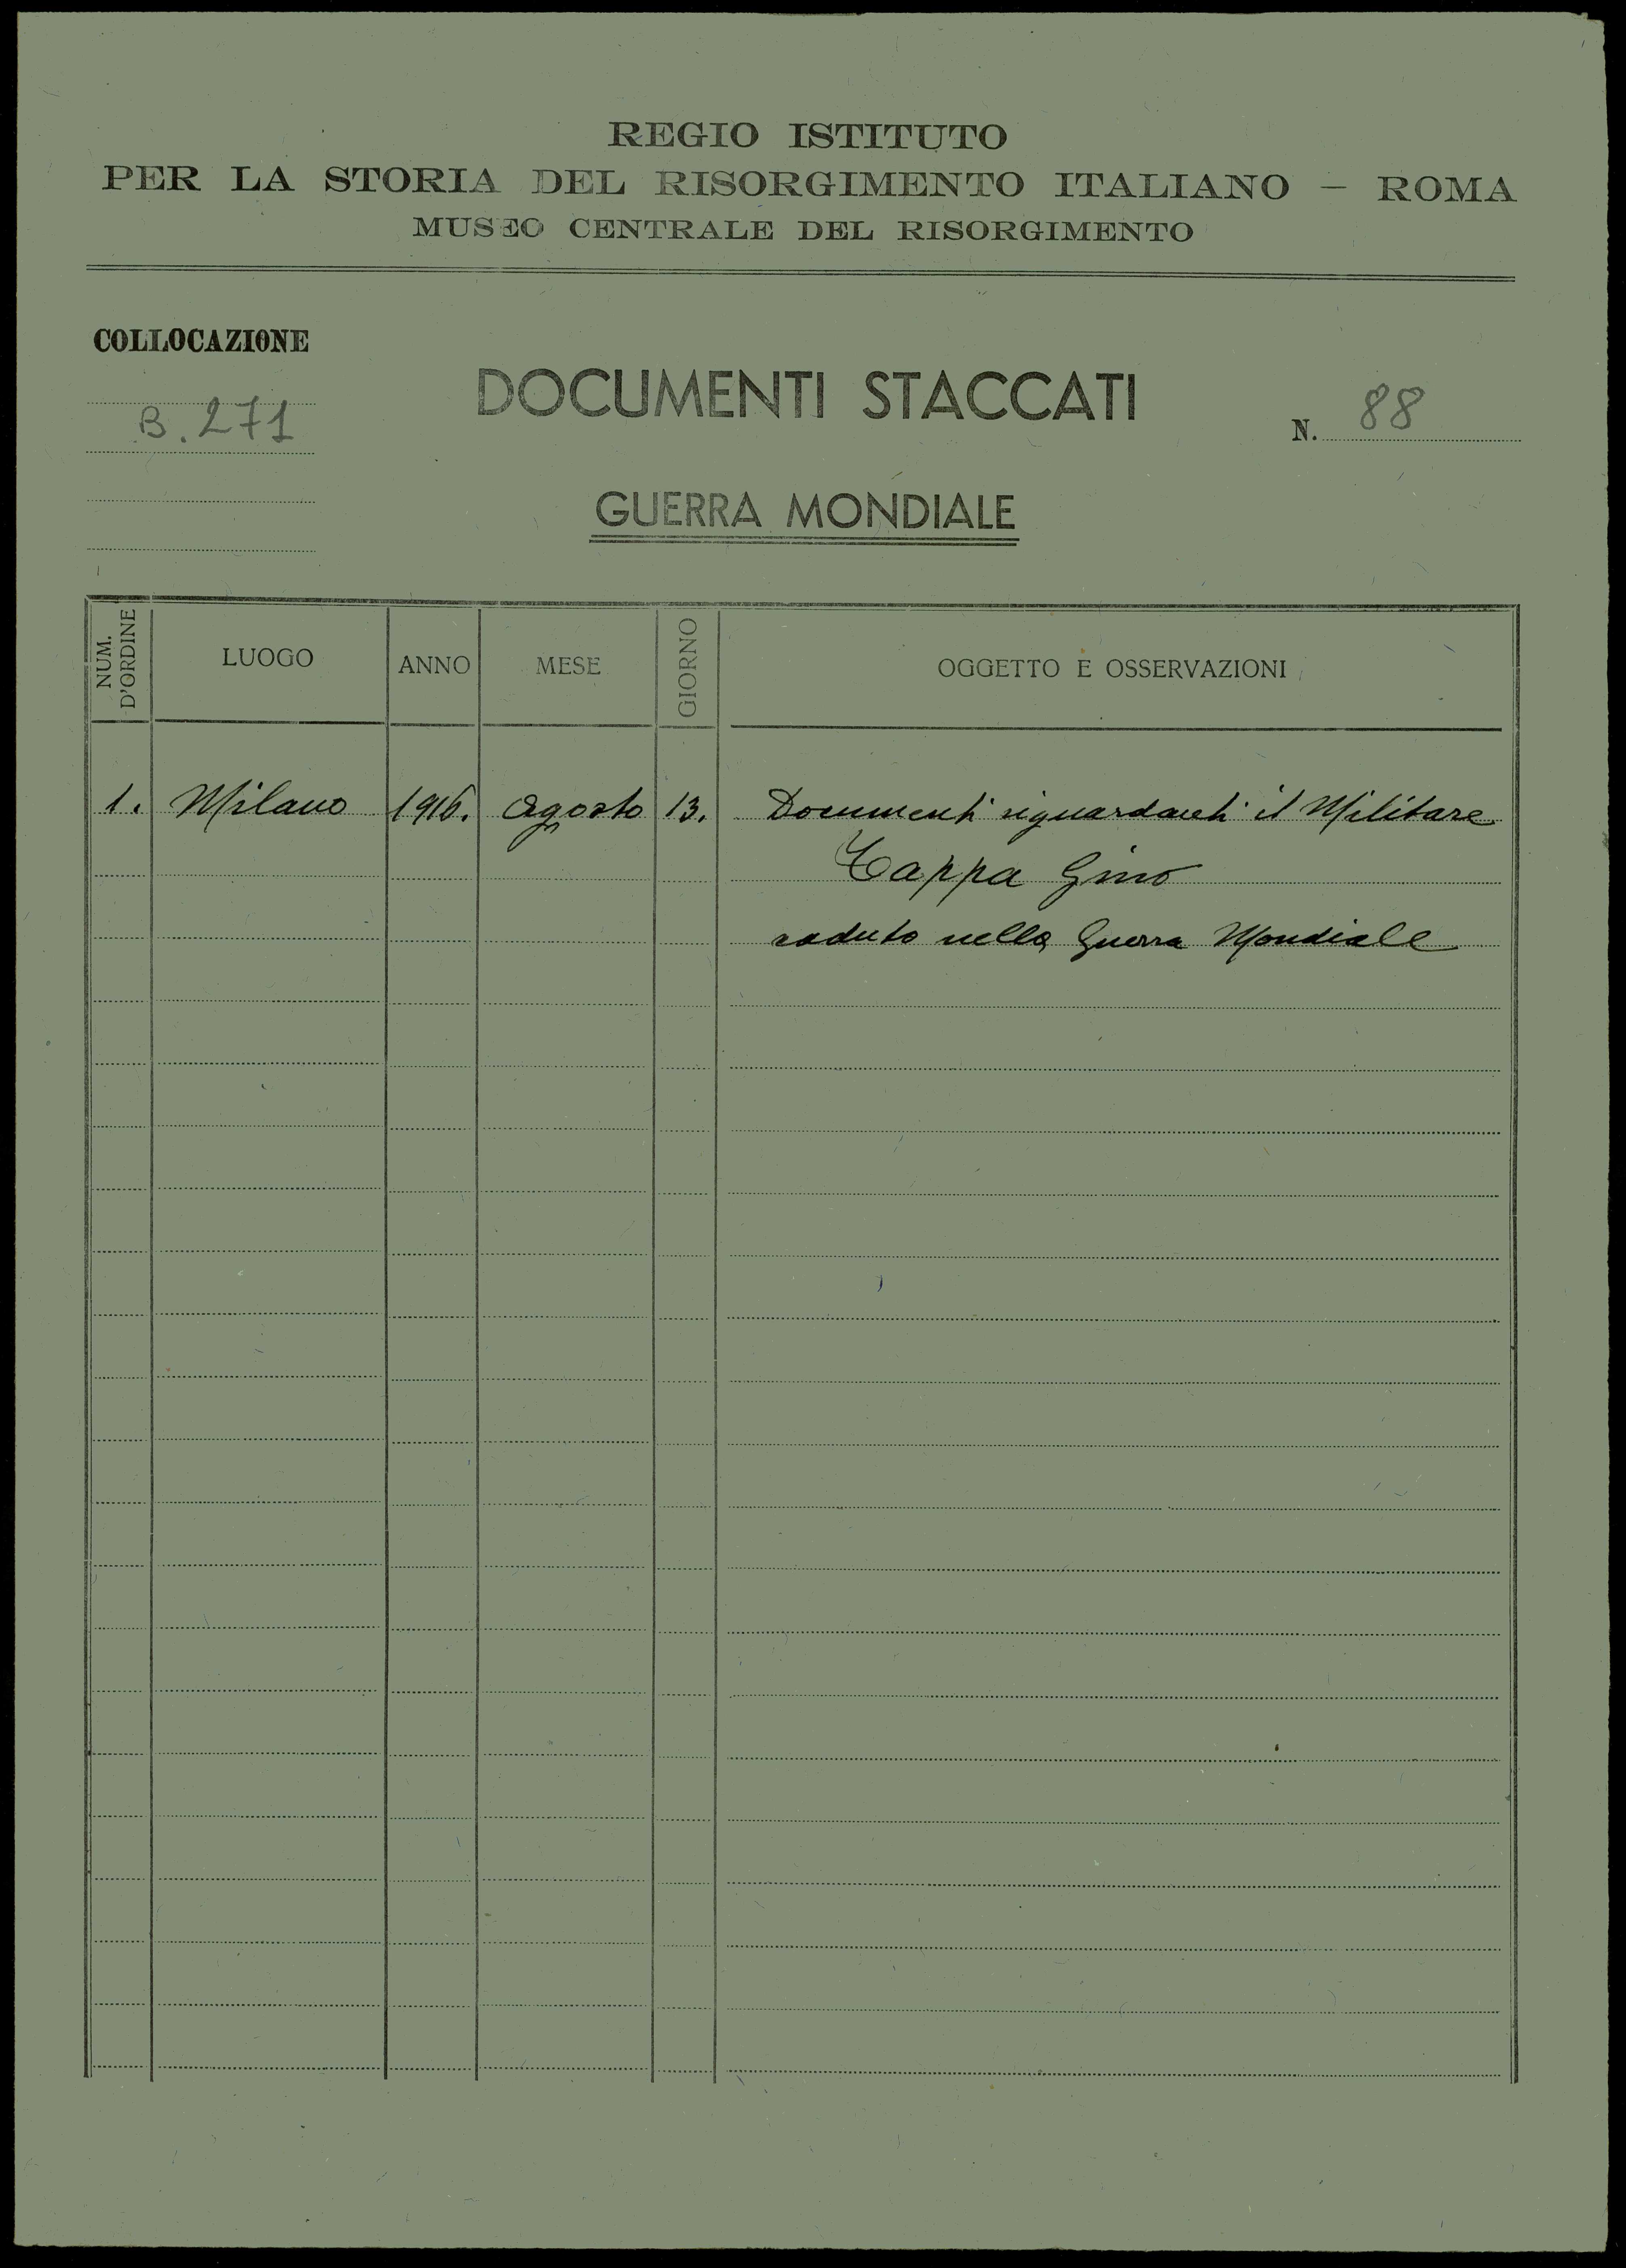 REGIO ISTITUTO
PER LA STORIA DEL RISORGIMENTO ITALIANO – ROMA
MUSEO CENTRALE DEL RISORGIMENTO
COLLOCAZIONE
B. 271
DOCUMENTI STACCATI
N. 88
GUERRA MONDIALE
NUM. D'ORDINE LUOGO ANNO MESE GIORNO OGGETTO E OSSERVAZIONI
1. Milano 1916. Agosto 13. Documenti riguardanti il Militare
Tappa Gino
caduto nella Guerra Mondiale